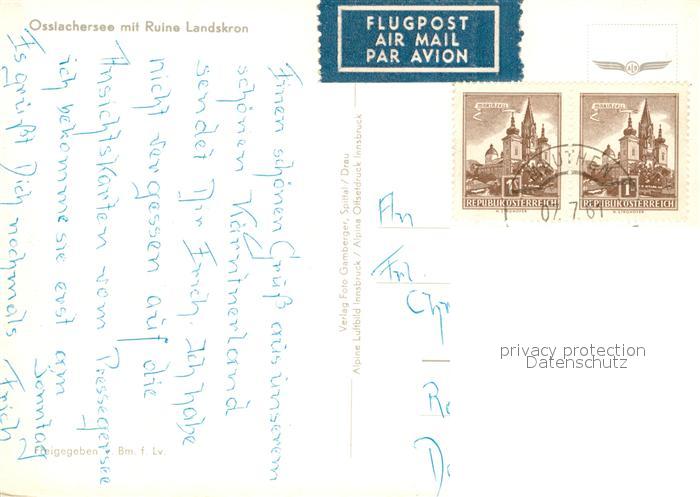 Ossiachersee mit Ruine Landskron
FLUGPOST
AIR MAIL
PAR AVION
MARIAZELL
MARIAZELL
1S
1S
REPUBLIK ÖSTERREICH
REPUBLIK ÖSTERREICH
07.7.61
Einen schönen Gruß aus unserem
schönen Kärntnerland
sendet Dir Erich. Ich habe
nicht vergessen auf die
Ansichtskarten vom Pressegersee
ich bekomme sie erst am
Sonntag
Es grüßt Dich nochmals Erich
Verlag Foto Gamberger, Spittal / Drau
Alpine Luftbild Innsbruck / Alpina Offsetdruck Innsbruck
An
Frl.
privacy protection
Datenschutz
Freigegeben v. Bm. f. Lv.